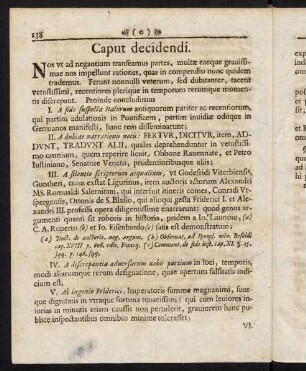 138 (o)
Caput decidendi.
Nos vt ad negantium transeamus partes, multæ eæque grauissi-
mæ nos impellunt rationes, quas in compendio nunc quidem
trademus. Ferunt nonnulli veterum, sed dubitanter, tacent
vetustissimi, recentiores plerique in temporum rerumque momen-
tis discrepant. Proinde concludimus
I. A fide suspecta Italorum antiquorum pariter ac recentiorum,
qui partim adulationis in Pontificem, partim inuidiæ odiique in
Germanos manifesti, hanc rem disseminarunt;
II. A dubitæ narrationis notis: FERTVR, DICITVR, item, AD-
DVNT, TRADVNT ALII, quales deprehenduntur in vetustissi-
mo omnium, quem reperire licuit, Obbone Rauennate, et Petro
Iustiniano, Senatore Veneto, prudentioribusque aliis:
III. A silentio scriptorum æqualium, vt Godefridi Viterbiensis,
Guntheri, quem exstat Ligurinus, item auctoris acterum Alexandri
MS. Romualdi Salernitani, qui interfuit itineris comes, Conradi Vr-
spergensis, Ottonis de S. Blasio, qui alioqui gesta Friderici I. et Ale-
xandri III. professa opera diligentissime enarrarunt: quod genus ar-
gumenti quanti sit roboris in historia, pridem a Io. Launoio, (a)
C. A. Ruperto (b) et Io. Eisenhardo (c) satis est demonstratum;
IV. A discrepantia aduersariorum nobis partium in loci, temporis,
modi aliarumque rerum designatione, quæ apertum falsitatis indi-
cium est,
V. Ab ingenio Friderici, Imperatoris summe magnanimi, suæ-
que dignitatis in vtraque fortuna tenacissimi: qui cum leniores in-
iurias in minutis etiam caussis non pertulerit, grauiorem hanc pu-
blice inspectantibus omnibus minime tolerasset;
VI.